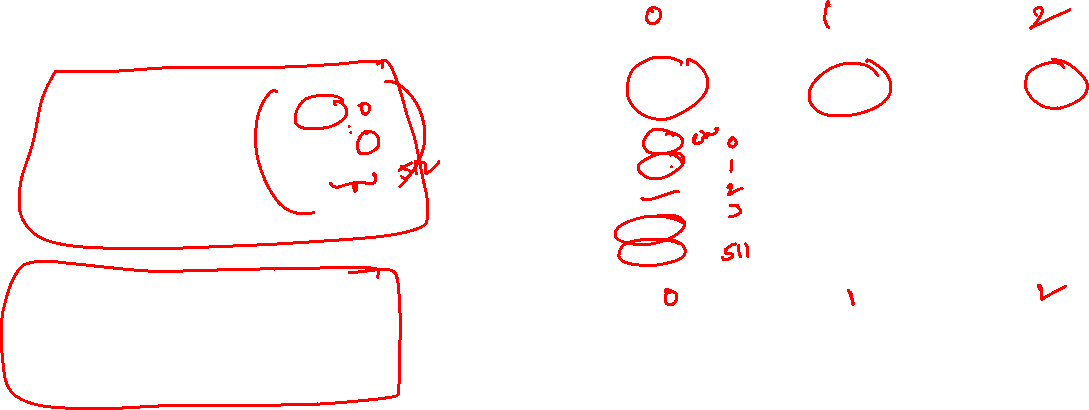 0 1 2
0
512
0
1
2
3
511
0 1 2